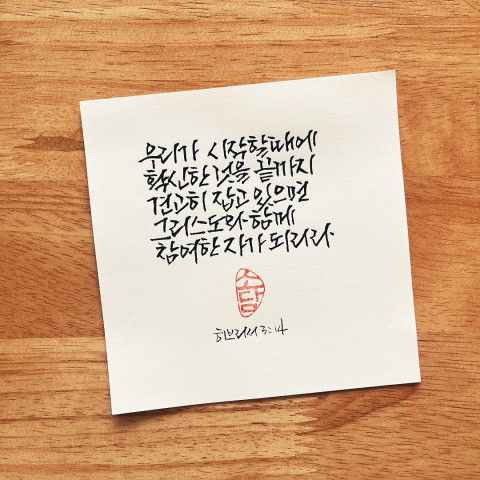 우리가 시작할때에
확신한 것을 끝까지
견고히 잡고 있으면
그리스도와 함께
참여한 자가 되리라.
소담
히브리서 3:14